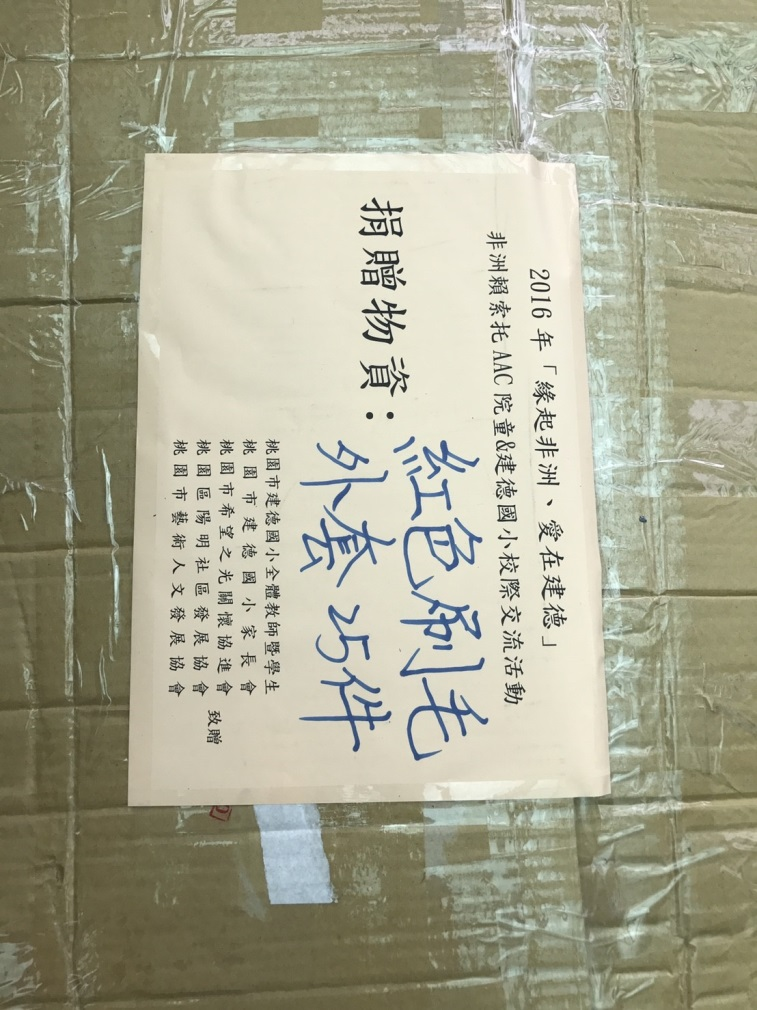 2016 年「緣起非洲、愛在建德」
非洲賴索托 AAC 院童&建德國小校際交流活動
捐贈物資：紅色刷毛
外套 25件
桃園市建德國小全體教師暨學生
桃園市建德國小家長會
桃園市希望之光關懷協進會
桃園區陽明社區發展協會 致贈
桃園市藝術人文發展協會